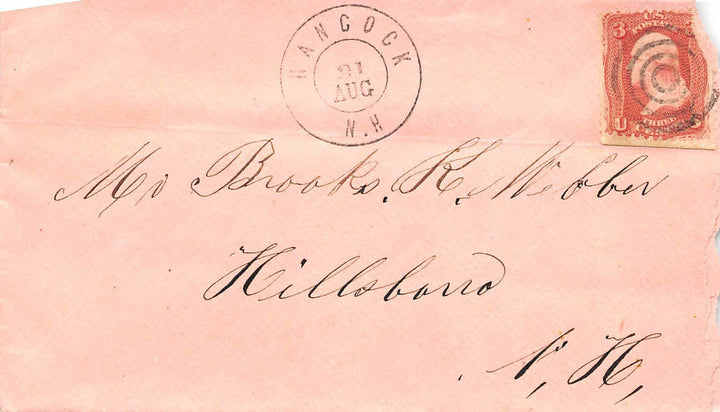 HANCOCK
21
AUG
N.H
3 U.S. 3
POSTAGE
THREE
U
CENTS
Mr Brooks. K. Webber
Hillsboro
N, H,